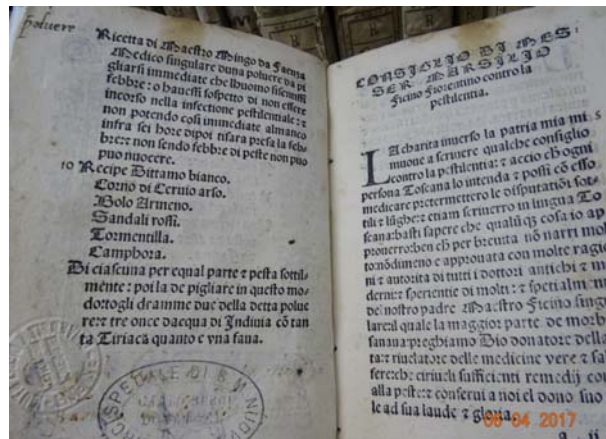 poluere
Ricetta di Maestro Mingo da Faenza
Medico singulare duna poluere da pi
gliarsi immediate che lhuomo si sentissi
febbre: o hauessi sospetto di non essere
incorso nella infectione pestilentiale: et
non potendo cosi immediate almanco
infra sei hore dipoi tisara presa la feb
bre: et non sendo febbre di peste non puo
puo nuocere.
10 Recipe Dittamo bianco.
Corno di Ceruio arso.
Bolo Armeno.
Sandali rossi.
Tormentilla.
Camphora.
Di ciascuna per equal parte et pesta sottil
mente: poi la de pigliare in questo mo-
do: togli dramme due della detta polue
re: et tre once dacqua di Indiuia cō tan
ta Tiriaca quanto e vna faua.
SPEDALE DI S. M. NUOVA
CONSIGLIO DI MES:
SER MARSILIO
Ficino Fiorentino contro la
pestilentia.
LA charita inuerso la patria mia mi 5
muoue a scriuere qualche consiglio
contro la pestilentia: et accio ch ogni
persona Toscana lo intenda et possi cō esso
medicare pretermettero le disputatiōi sot-
tili et lūghe: et etiam scriuerro in lingua To
scana: basti sapere che qualūq cosa io ap
prouerro: ben ch per breuita nō narri mol
to: nōdimeno e approuata con molte ragio
ni et autorita di tutti i dottori antichi et m
derni: et sperientie di molti: et spetialmen
del nostro padre Maestro Ficino sing
lare: il quale la maggior parte de morb
sanaua: preghiamo Dio donatore della
ta: et riuelatore delle medicine vere et sa
fere: che ci riueli sufficienti remedij con
alla peste: et conserui a noi el dono suo
le ad sua laude et gloria.
06 04 2017
a ii